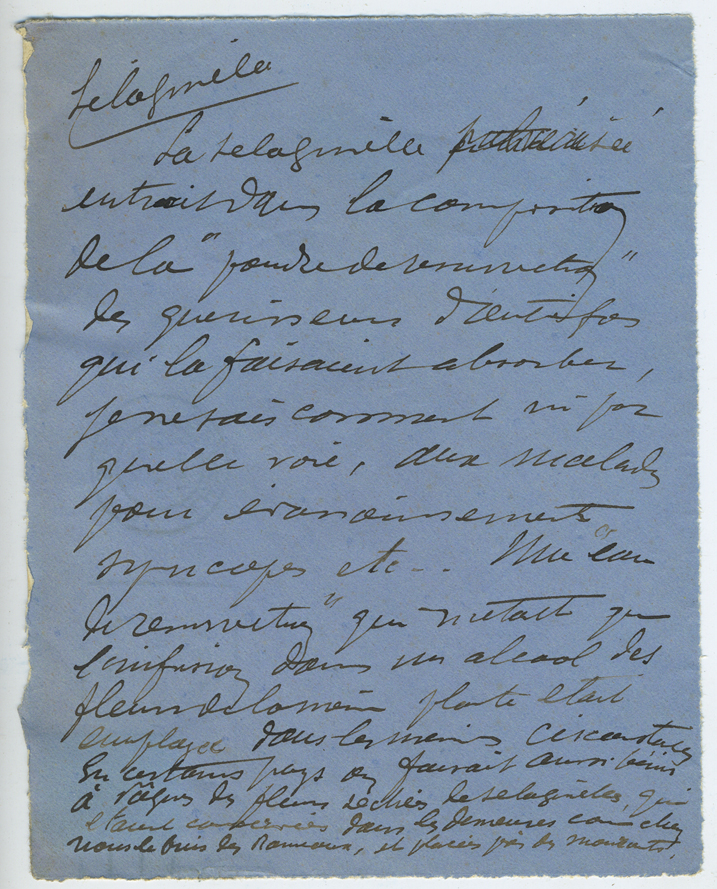 Sélaginella
La selaginelle pulvérisée
entrait dans la composition
de la "poudre de resurrection"
des guerisseurs d'autrefois
qui la faisaient absorber,
je ne sais comment ni par
quelle voie, aux malades
pour évanouissements
syncopes etc... Une "eau
de resurrection" qui n'etait que
l'infusion dans un alcool des
fleurs de la même plante etait
employée dans les mêmes circonstances
En certains pays on faisait aussi bénir
à Pâques des fleurs sechées de selaginelles, qui
etaient conservées dans les demeures comme chez
nous le buis des Rameaux, et placées près des mourants.